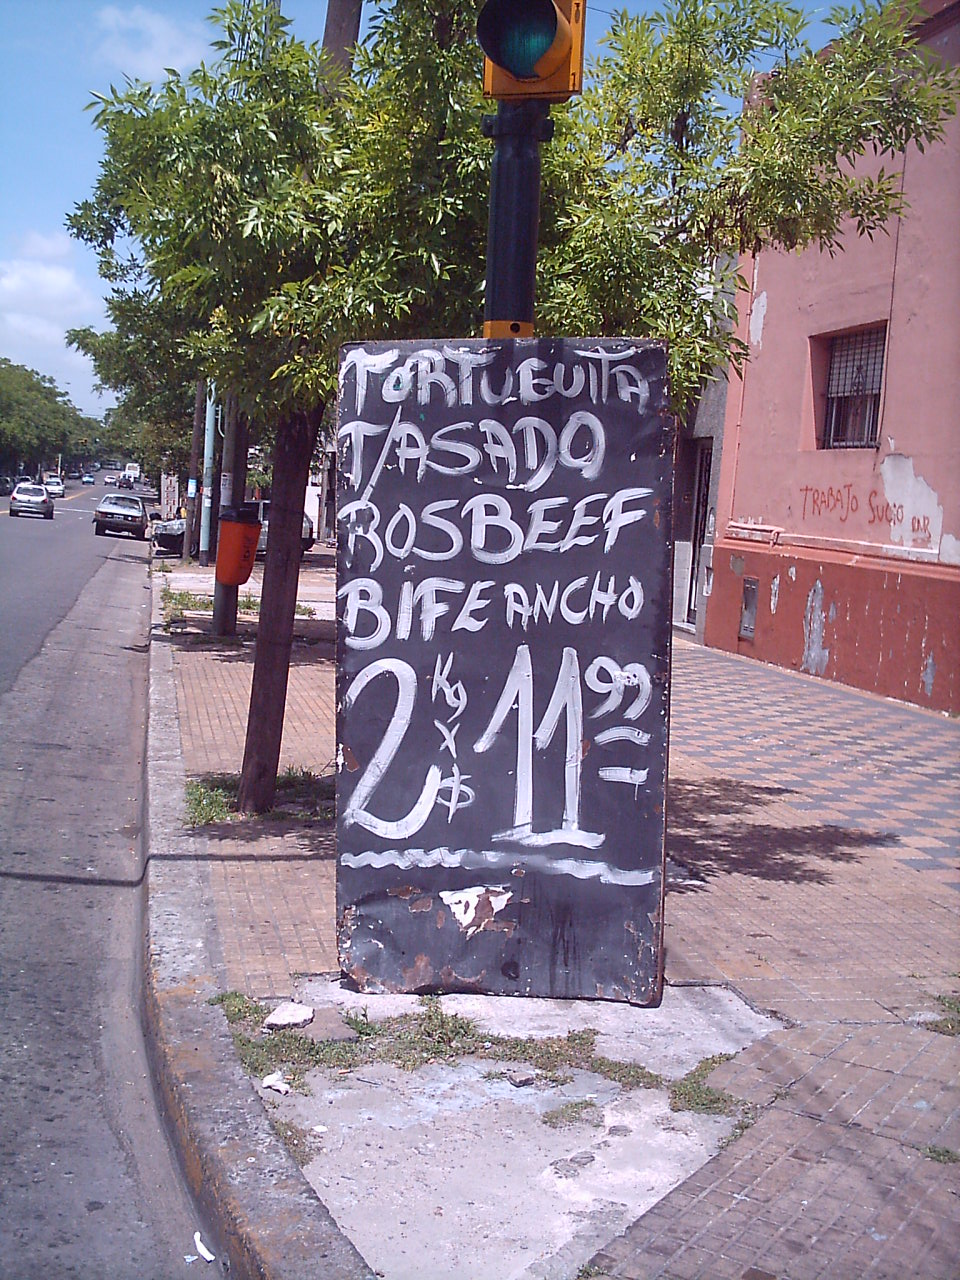 TORTUGUITA
T/ASADO
ROSBEEF
BIFE ANCHO
2 Kg x $ 11.99
TRABAJO SUCIO